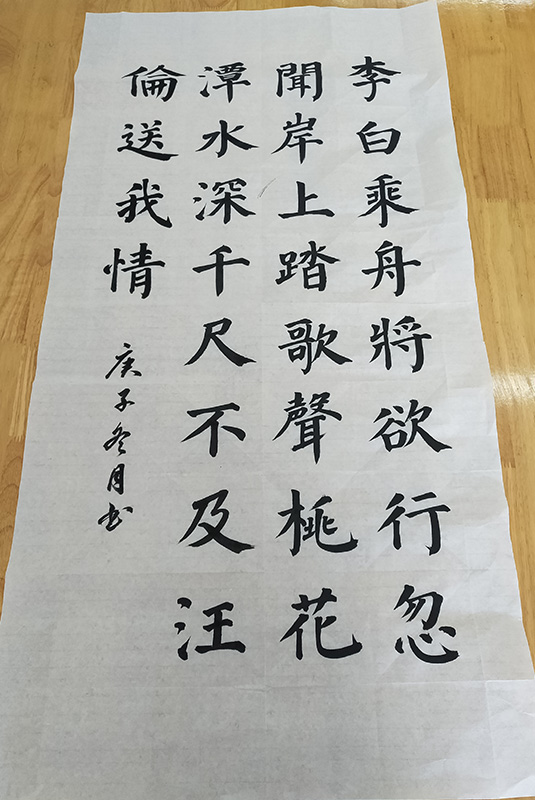 李白乘舟將欲行忽
聞岸上踏歌聲桃花
潭水深千尺不及汪
倫送我情
庚子冬月书